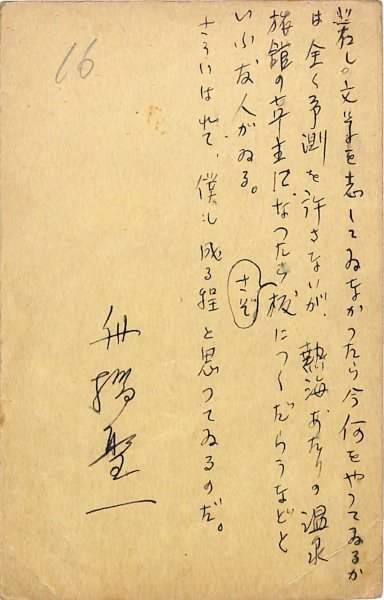 若し文学を志してゐなかつたら今何をやつてゐるか
は全く予測を許さないが、熱海あたりの温泉
旅館の亭主になつたらさぞ板につくだらうなどと
いふ友人がゐる。
さういはれて、僕も成る程と思つてゐるのだ。
舟橋聖一
16